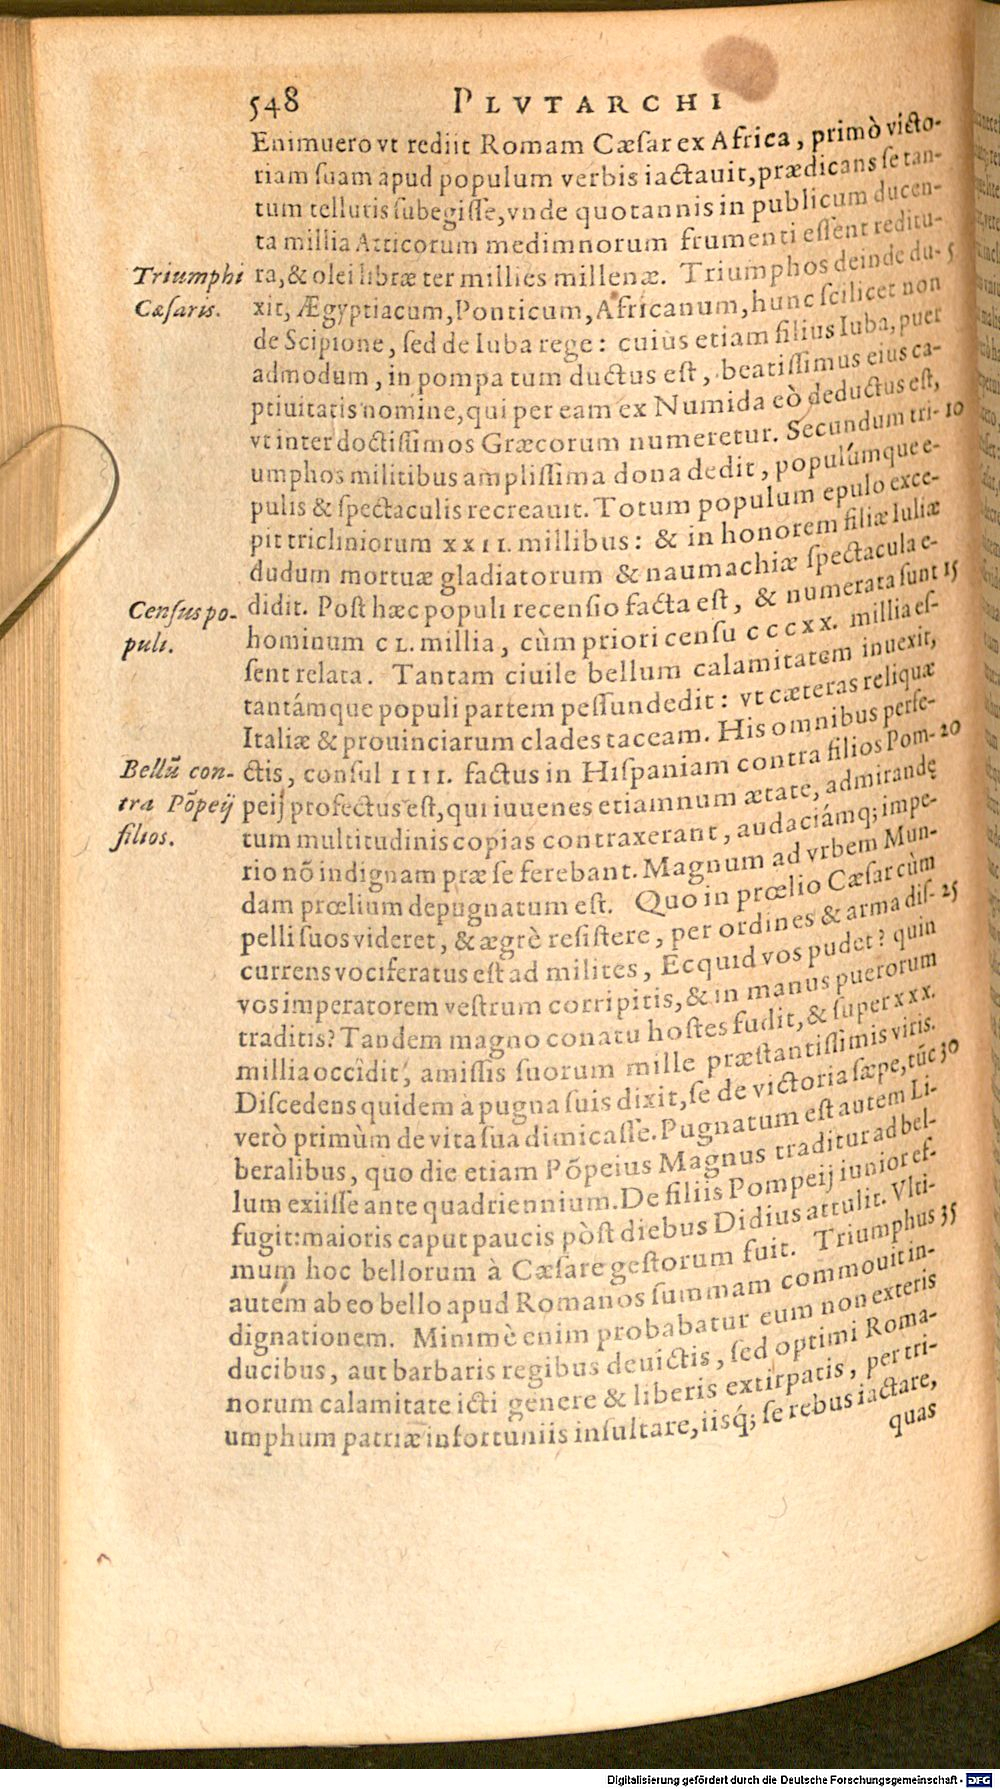 548 PLVTARCHI
Enimuero vt rediit Romam Cæsar ex Africa, primò victo-
riam suam apud populum verbis iactauit, prædicans se tan-
tum telluris subegisse, vnde quotannis in publicum ducen-
ta millia Atticorum medimnorum frumenti essent reditu-
Triumphi Cæsaris.
ra, & olei libræ ter millies millenæ. Triumphos deinde du- 5
xit, Ægyptiacum, Ponticum, Africanum, hunc scilicet non
de Scipione, sed de Iuba rege: cuius etiam filius Iuba, puer
admodum, in pompa tum ductus est, beatissimus eius ca-
ptiuitatis nomine, qui per eam ex Numida eò deductus est,
vt inter doctissimos Græcorum numeretur. Secundum tri- 10
umphos militibus amplissima dona dedit, populúmque e-
pulis & spectaculis recreauit. Totum populum epulo exce-
pit tricliniorum XXII. millibus: & in honorem filiæ Iuliæ
dudum mortuæ gladiatorum & naumachiæ spectacula e-
Census po-
puli.
didit. Post hæc populi recensio facta est, & numerata sunt 15
hominum CL. millia, cùm priori censu CCCXX. millia es-
sent relata. Tantam ciuile bellum calamitatem inuexit,
tantámque populi partem pessundedit: vt cæteras reliquæ
Italiæ & prouinciarum clades taceam. His omnibus perfe-
Bellũ con-
tra Põpeij
filios.
ctis, consul IIII. factus in Hispaniam contra filios Pom- 20
peij profectus est, qui iuuenes etiamnum ætate, admirandę
tum multitudinis copias contraxerant, audaciámq; impe-
rio nõ indignam præ se ferebant. Magnum ad vrbem Mun-
dam prœlium depugnatum est. Quo in prœlio Cæsar cùm
pelli suos videret, & ægrè resistere, per ordines & arma dis- 25
currens vociferatus est ad milites, Ecquid vos pudet? quin
vos imperatorem vestrum corripitis, & in manus puerorum
traditis? Tandem magno conatu hostes fudit, & super XXX.
millia occîdit, amissis suorum mille præstantissimis viris.
Discedens quidem à pugna suis dixit, se de victoria sæpe, tũc 30
verò primùm de vita sua dimicasse. Pugnatum est autem Li-
beralibus, quo die etiam Põpeius Magnus traditur ad bel-
lum exiisse ante quadriennium. De filiis Pompeij iunior ef-
fugit: maioris caput paucis pòst diebus Didius attulit. Vlti-
mum hoc bellorum à Cæsare gestorum fuit. Triumphus 35
autem ab eo bello apud Romanos summam commouit in-
dignationem. Minimè enim probabatur eum non exteris
ducibus, aut barbaris regibus deuictis, sed optimi Roma-
norum calamitate icti genere & liberis extirpatis, per tri-
umphum patriæ infortuniis insultare, iisq́; se rebus iactare,
quas
Digitalisierung gefördert durch die Deutsche Forschungsgemeinschaft - DFG